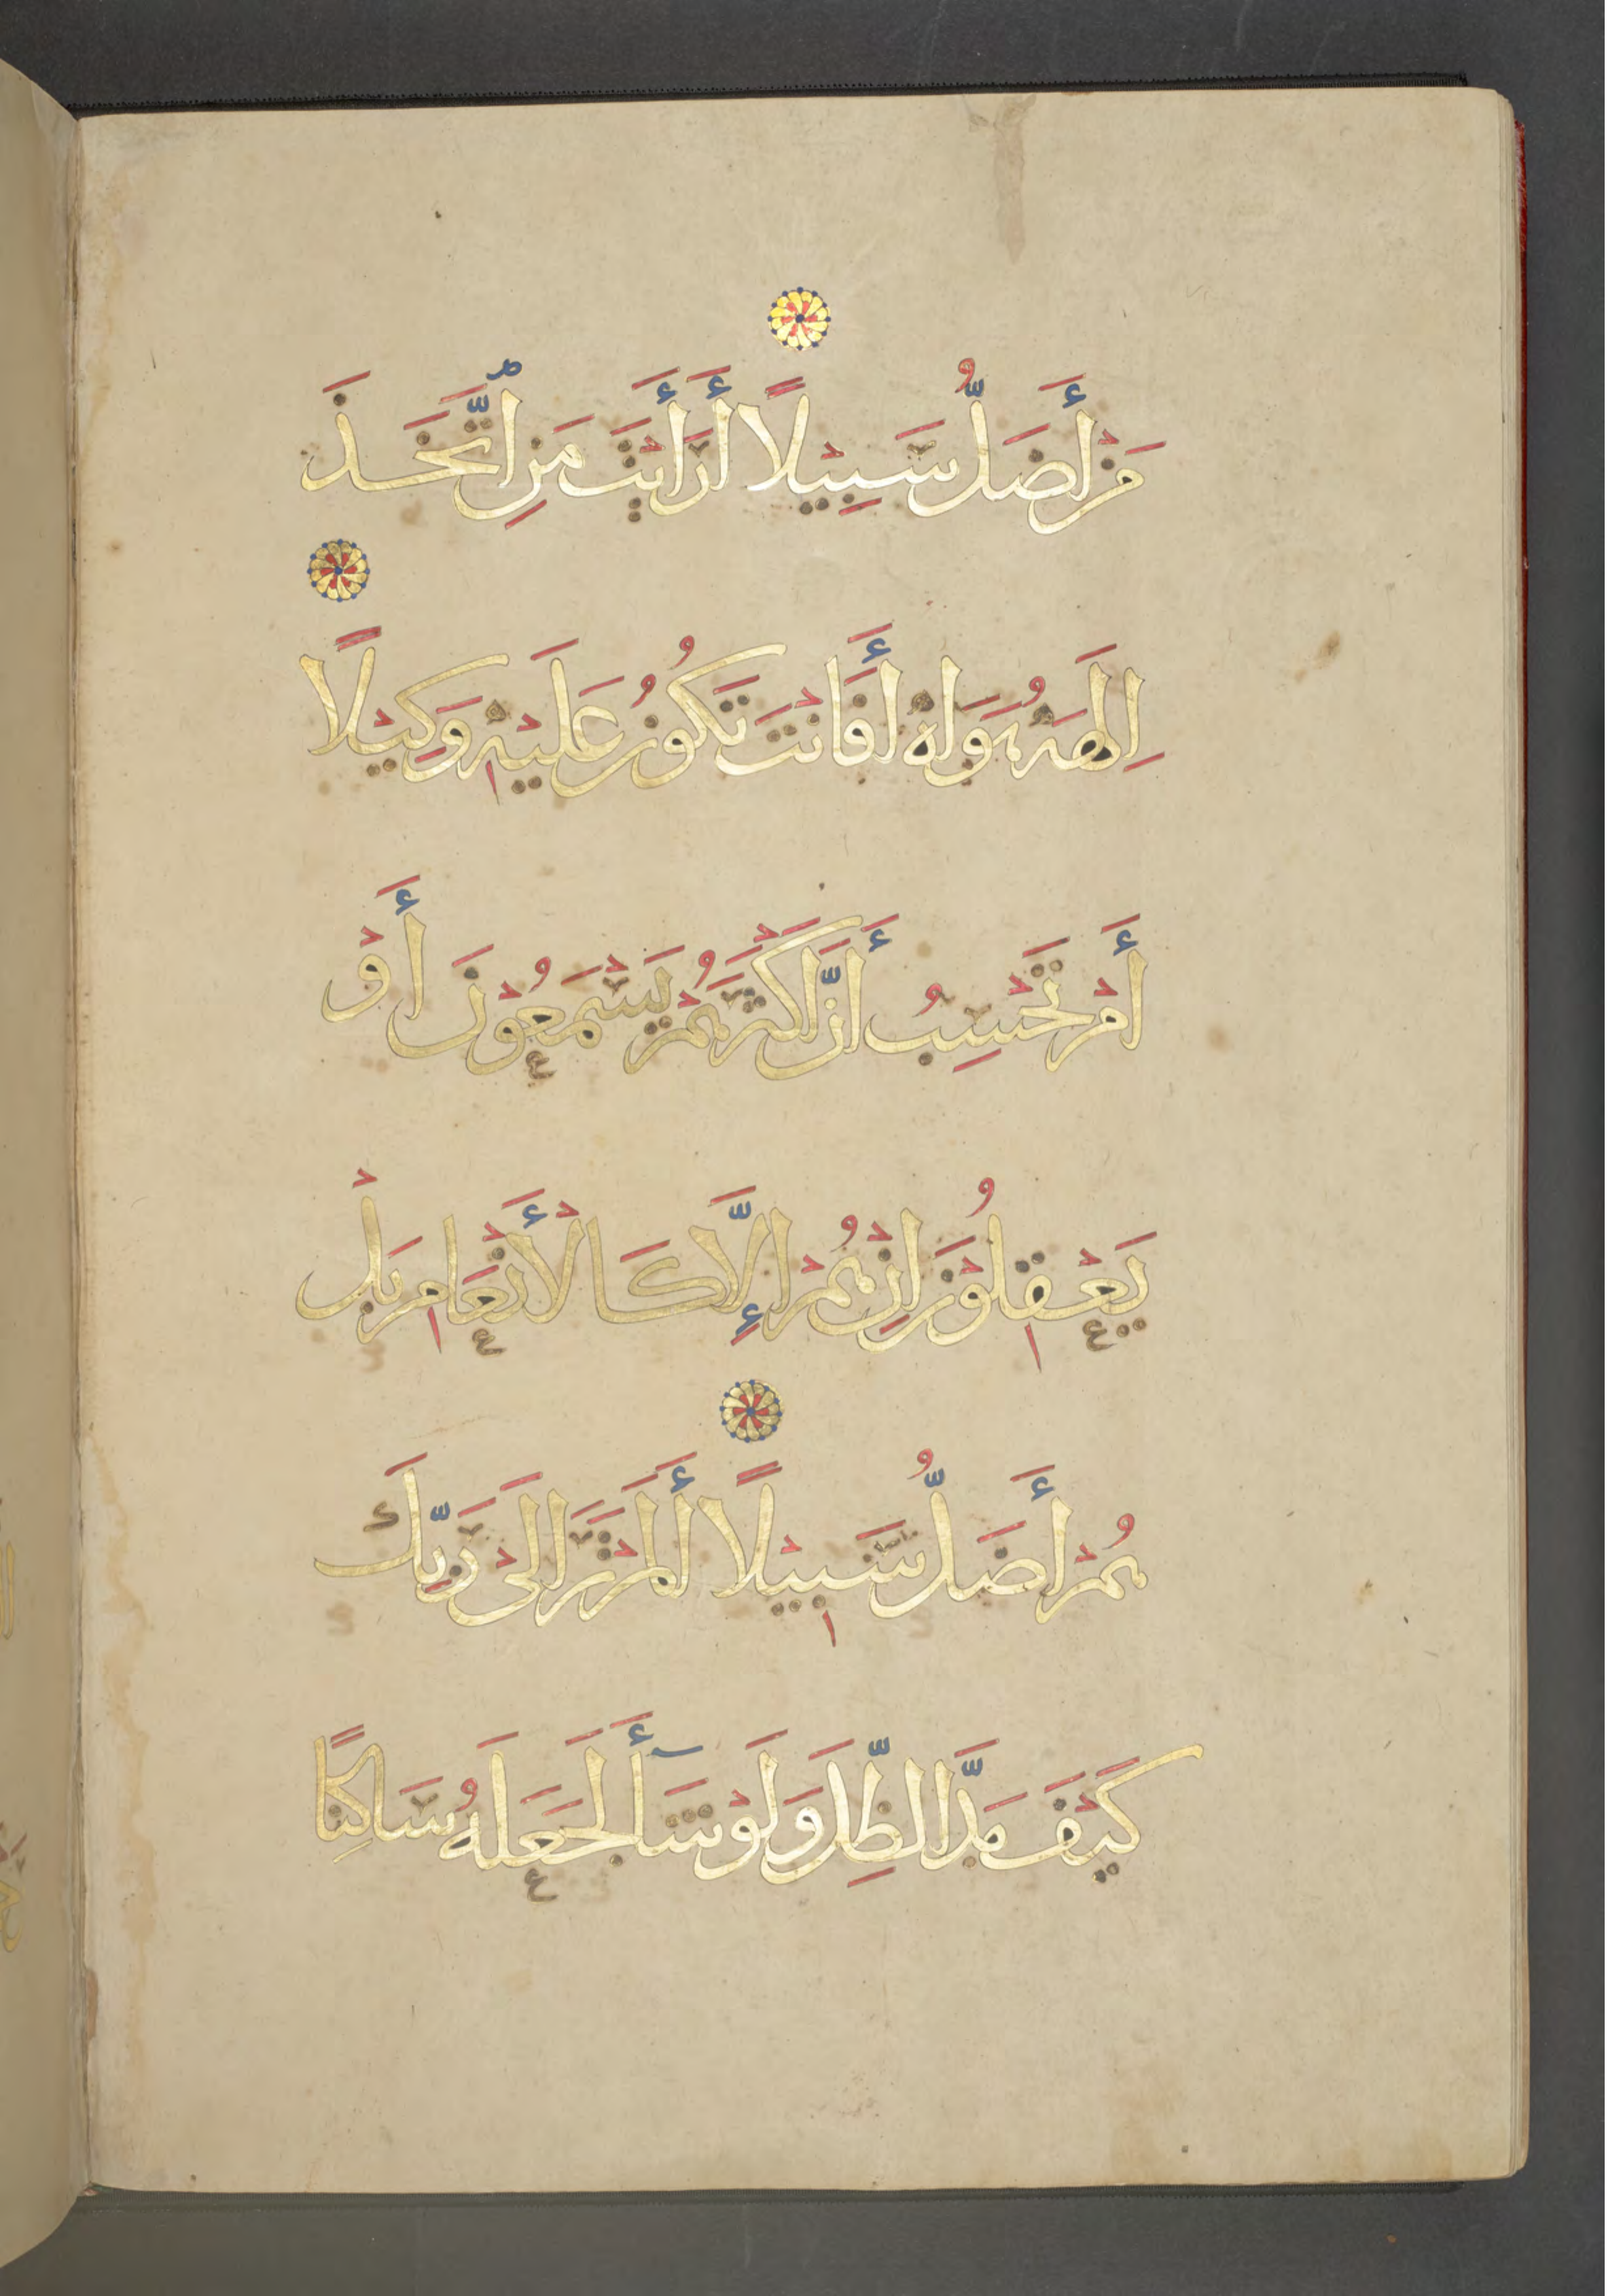 مَنْ أَضَلُّ سَبِيْلًا أَرَأَيْتَ مَنِ ٱتَّخَذَ
اِلٰهَهُ هَوَاهُ أَفَاَنْتَ تَكُوْنُ عَلَيْهِ وَكِيْلًا
أَمْ تَحْسِبُ أَنَّ اَكْثَرَهُمْ يَسْمَعُوْنَ أَوْ
يَعْقِلُوْنَ اِنْ هُمْ إِلَّا كَالْأَنْعَامِ بَلْ
هُمْ أَضَلُّ سَبِيْلًا أَلَمْ تَرَ اِلَىْ رَبِّكَ
كَيْفَ مَدَّ الظِّلَ وَلَوْ شَآأَ لَجَعَلَهُ سَاكِنًا